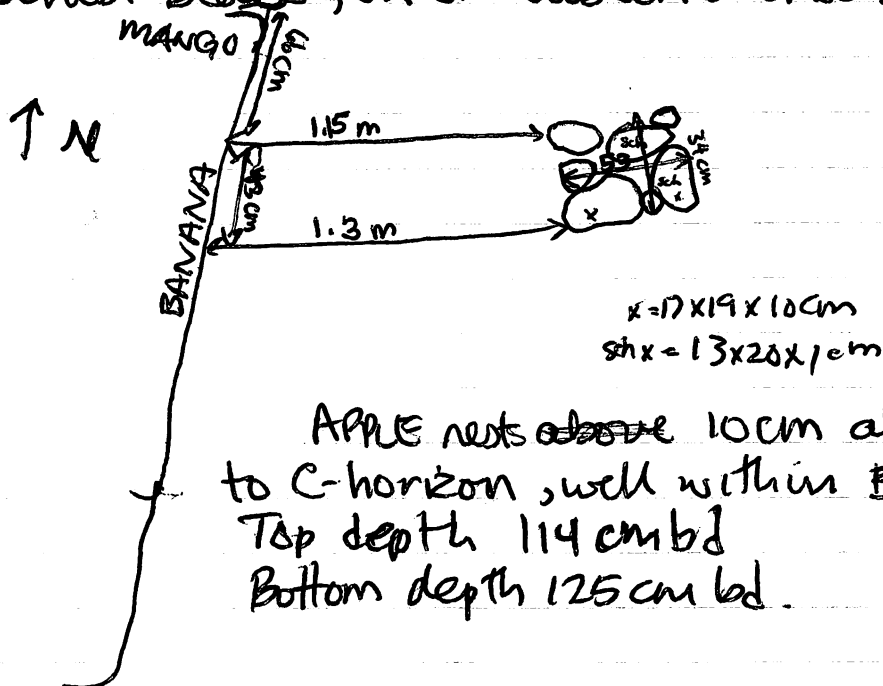 MANGO
66 cm
↑ N
1.15 m
sch
59
34 cm
43 cm
sch
x
x
1.3 m
BANANA
x=17x19x10cm
sch x = 13x20x1cm
APPLE nests above 10cm
to C-horizon, well within
Top depth 114 cmbd
Bottom depth 125 cm bd.